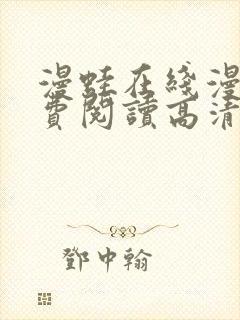 漫蛙在綫漫
費閱讀高清
鄧中翰